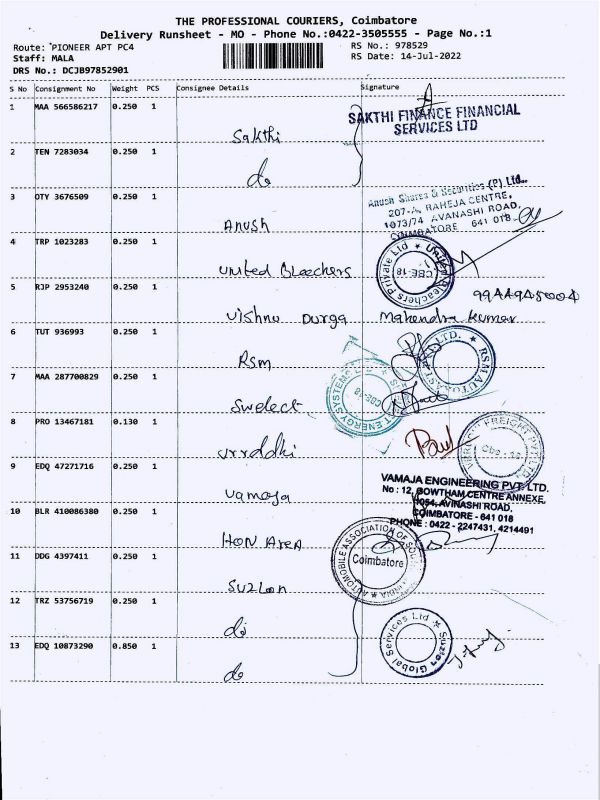 THE PROFESSIONAL COURIERS, Coimbatore
Delivery Runsheet - MO - Phone No.:0422-3505555 - Page No.:1
Route: PIONEER APT PC4
RS No.: 978529
Staff: MALA
RS Date: 14-Jul-2022
DRS No.: DCJB97852901
S No Consignment No Weight PCS Consignee Details Signature
1 MAA 566586217 0.250 1
SAKTHI FINANCE FINANCIAL
SERVICES LTD
Sakthi
2 TEN 7283034 0.250 1
do
3 OTY 3676509 0.250 1
Anush Shares & Securities (P) Ltd.,
207-A, RAHEJA CENTRE,
1073/74 AVANASHI ROAD,
COIMBATORE 641 018
Anush
4 TRP 1023283 0.250 1
United Bleachers Private Ltd
CBE-18
United Bleechers
5 RJP 2953240 0.250 1
Vishnu Durga Mahendra Kumar
6 TUT 936993 0.250 1
LTD. ★ RSM AUTOKAST
Rsm
7 MAA 287700829 0.250 1
ENERGY SYSTEMS
CBE-18
Swelect
8 PRO 13467181 0.130 1
FREIGHT PVT LTD
CBE-18
Vrddhi
9 EDQ 47271716 0.250 1
VAMAJA ENGINEERING PVT. LTD.
No : 12, GOWTHAM CENTRE ANNEXE,
1054, AVINASHI ROAD,
COIMBATORE - 641 018
PHONE : 0422 - 2247431, 4214491
vamaja
10 BLR 410086380 0.250 1
HON Area
11 DDG 4397411 0.250 1
AUTOMOBILE ASSOCIATION OF SOUTH INDIA
Coimbatore
Suzlon
12 TRZ 53756719 0.250 1
do
13 EDQ 10873290 0.850 1
Suzlon Global Services Ltd
do